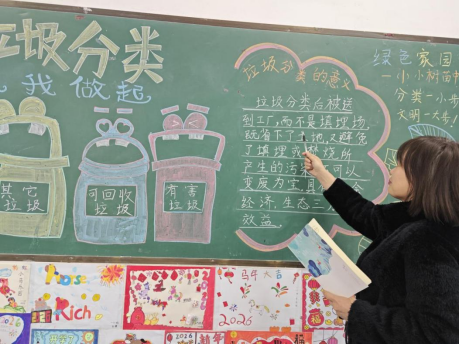 垃圾分类
我做起
其它
垃圾
可回收
垃圾
有害
垃圾
垃圾分类的意义
垃圾分类后被送
到工厂,而不是填埋场,
既省下了土地,又避免
了填埋或焚烧所
产生的污染,可以
变废为宝,具
经济、生态三
效益
绿色家园
一小小树苗
分类一小步
文明一大步!
Rich
马年大吉
2026
2026